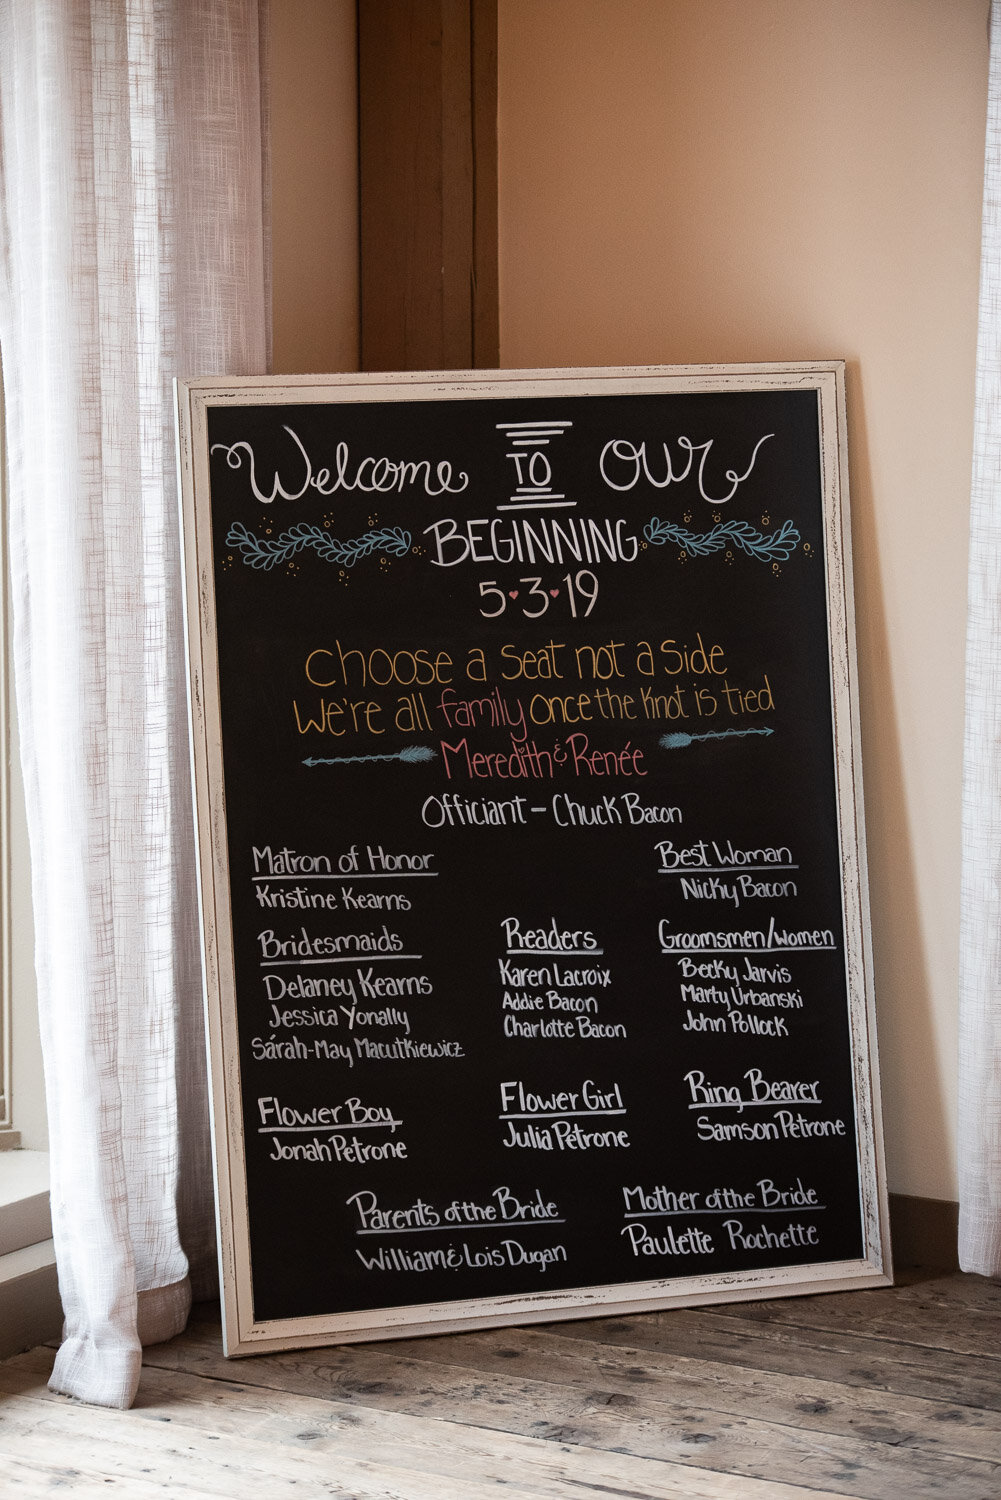 Welcome TO OUR
BEGINNING
5♥3♥19
Choose a seat not a side
We're all family once the knot is tied
Meredith & Renée
Officiant - Chuck Bacon
Matron of Honor
Kristine Kearns
Best Woman
Nicky Bacon
Bridesmaids
Delaney Kearns
Jessica Yonally
Sarah-May Macutkiewicz
Readers
Karen Lacroix
Addie Bacon
Charlotte Bacon
Groomsmen/women
Becky Jarvis
Marty Urbanski
John Pollock
Flower Boy
Jonah Petrone
Flower Girl
Julia Petrone
Ring Bearer
Samson Petrone
Parents of the Bride
William & Lois Dugan
Mother of the Bride
Paulette Rochette